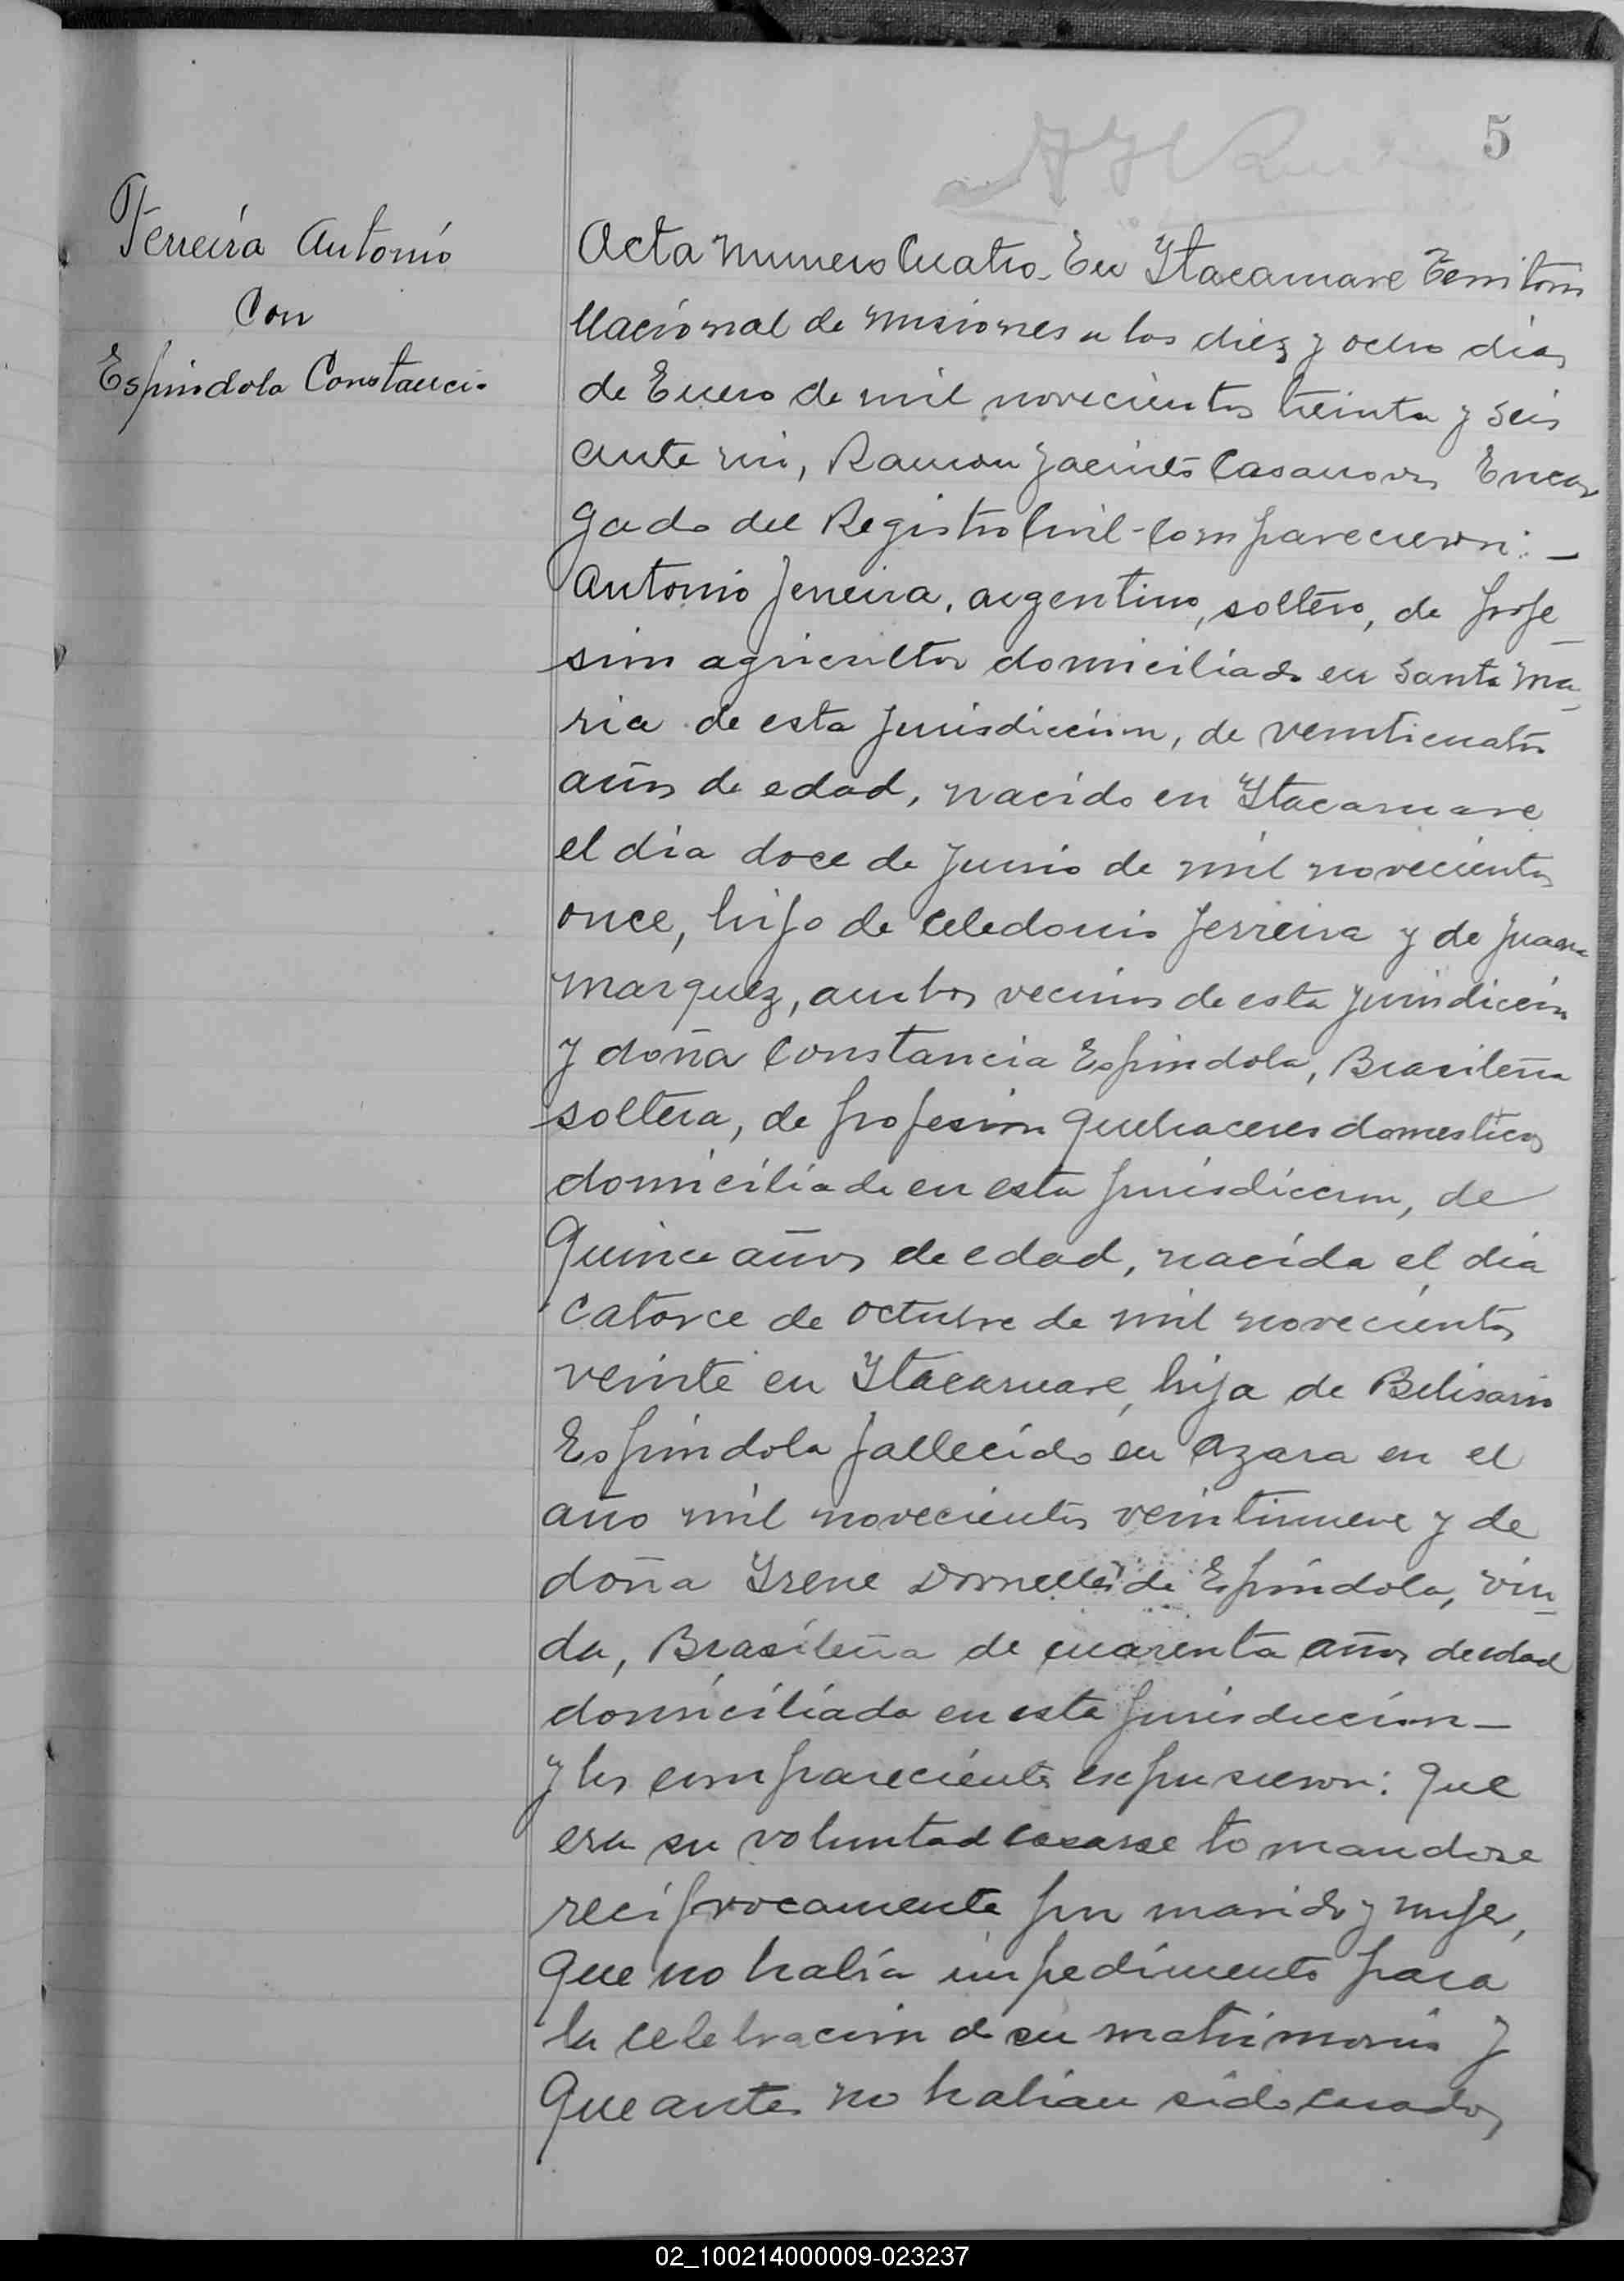 5
Ferreira Antonio
Con
Espindola Constanci.
Acta Numero Cuatro. En Ytacaruare Territorio
Nacional de Misiones a los diez y ocho dias
de Enero de mil novecientos treinta y seis
ante mi, Ramon Jacinto Casanova Encar
gado del Registro Civil - Comparecieron: -
Antonio Ferreira, argentino, soltero, de profe_
sion agricultor domiciliado en Santa Ma_
ria de esta jurisdiccion, de veinticuatro
años de edad, nacido en Ytacaruare
el dia doce de Junio de mil novecientos
once, hijo de Celedonio Ferreira y de Juana
Marquez, ambos vecinos de esta jurisdiccion
y doña Constancia Espindola, Brasileña
soltera, de profesion quehaceres domesticos
domiciliada en esta jurisdiccion, de
Quince años de edad, nacida el dia
catorce de octubre de mil novecientos
veinte en Ytacaruare, hija de Belisario
Espindola fallecido en Azara en el
año mil novecientos veintinueve y de
doña Yrene Dornelles de Espindola, viu_
da, Brasileña de cuarenta años de edad
domiciliada en esta jurisdiccion -
y los comparecientes expusieron: que
era su voluntad casarse tomandose
reciprocamente por marido y mujer,
que no habia impedimento para
la celebracion de su matrimonio y
que antes no habian sido casados,
02_100214000009-023237